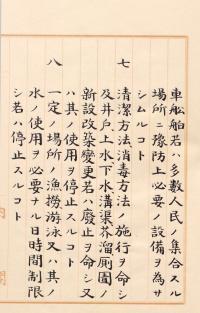 車船舶若ハ多數人民ノ集合スル
場所ニ豫防上必要ノ設備ヲ爲サ
シムルコト
七 清潔方法消毒方法ノ施行ヲ命シ
及井戸上水下水溝渠芥溜厠圊ノ
新設改築變更若ハ廢止ヲ命シ又
ハ其ノ使用ヲ停止スルコト
八 一定ノ場所ノ漁撈游泳又ハ其ノ
水ノ使用ヲ必要ナル日時間制限
シ若ハ停止スルコト